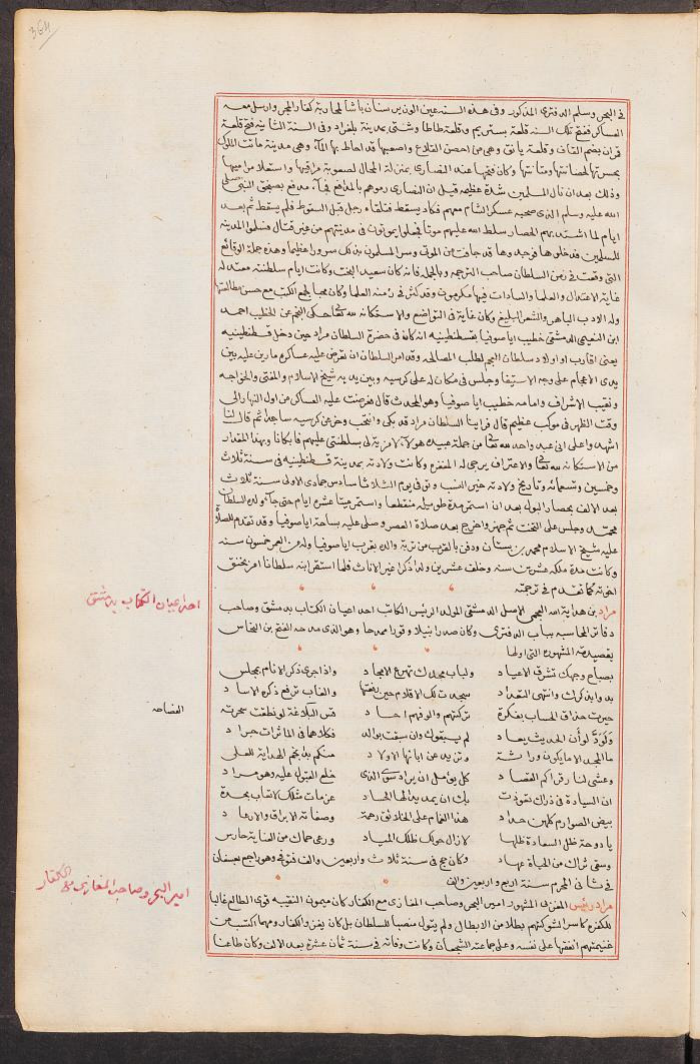 364
في البحر وسلم الدفتري المذكور وفي هذه السنة عين الوزير سنان باشا لمحاربة كفار المجر وارسل معه
العساكر ففتح تلك السنة قلعة بستريم وقلعة طاطا وشتى بمدينة بلغراد وفي السنة الثانية فتح قلعة
قران بضم القاف وقلعة يانق وهي من احصن القلاع واصعبها قد احاط بها الماء وهي مدينة ماتت الملوك
بحسرتها لحصانتها ومتانتها وكان فتحها عند النصارى بمنزلة المحال لصعوبة مراقيها واستعلا مراميها
وذلك بعد ان نال المسلمين شدة عظيمة قيل ان النصارى رموهم بالمدافع فجاء مدفع بصنجق النبي صلى
الله عليه وسلم الذي صحبه عسكر الشام معهم فكاد يسقط فتلقاه رجل قبل السقوط فلم يسقط ثم بعد
ايام لما اشتد بهم الحصار سلط الله عليهم موتا فجعلوا يموتون في مدينتهم من غير قتال فسلموا المدينه
للمسلمين فدخلوها فوجدوها قد جافت من الموتى وسر المسلمون بذلك سرورا عظيما وهذه جملة الوقائع
التي وقعت في زمن السلطان صاحب الترجمه وبالجملة فانه كان سعيد البخت وكانت ايام سلطنته معتدلة
غاية الاعتدال والعلما والسادات فيها مكرمون وقد كثر في زمنه العلما وكان محبا لجمع الكتب مع حسن مطالعتها
وله الادب الباهر والشعر البليغ وكان غاية في التواضع والاستكانة لله تعالى حكى النجم عن الخطيب احمد
ابن النعيمي الدمشقي خطيب اياصوفيا بقسطنطينيه انه كان في حضرة السلطان مراد حين دخل قسطنطينيه
يعني اقارب او اولاد سلطان العجم لطلب المصالحه وقد امر السلطان ان تعرض عليه عساكره مارين عليه بين
يدي الاعجام على وجه الاستيفا وجلس في مكان له على كرسيه وبين يديه شيخ الاسلام والمفتي والخواجه
ونقيب الاشراف وامامه خطيب اياصوفيا وهو المحدث قال فعرضت عليه العساكر من اول النهار الى
وقت الظهر في موكب عظيم قال فراينا السلطان مراد قد بكى وانتحب وخر عن كرسيه ساجدا ثم قال لنا
اشهدوا على اني عبد واحد لله تعالى من جملة عبيده هولاء لا مزية لي بسلطنتي عليهم فابكانا وبهذا المقدار
من الاستكانة لله تعالى والاعتراف يرجى له المغفرة وكانت ولادته بمدينة قسطنطينيه في سنة ثلاث
وخمسين وتسعمائة وتاريخ ولادته خير النسب وتوفي يوم الثلاثا سادس جمادى الاولى سنة ثلاث
بعد الالف بحصار البول بعد ان استمر مدة طويلة منقطعا واستمر ميتا عشرة ايام حتى جاء ولده السلطان
محمد وجلس على التخت ثم جهز واخرج بعد صلاة العصر وصلى عليه بساحة اياصوفيا وقد تقدم للصلاة
عليه شيخ الاسلام محمد بن بستان ودفن بالقرب من تربة والده بقرب اياصوفيا وله من العمر خمسون سنه
وكانت مدة ملكه عشرين سنه وخلف عشرين ولدا ذكرا غير الاناث فلما استقر ابنه سلطانا امر بخنق
اخوته كما تقدم في ترجمته
مراد بن هداية الله العجمي الاصل الدمشقي المولد الرئيس الكاتب احد اعيان الكتاب بدمشق وصاحب
دفاتر المحاسبه بباب الدفتري وكان صدرا نبيلا وقورا ممدحا وهو الذي مدحه الفتح بن النحاس
بقصيدته المشهوره التي اولها
بصباح وجهك تشرق الاعياد ولباب مجدك تهرع الامجاد واذا جرى ذكر الانام بمجلس
بدوا بذكرك وانتهى المقداد سجدت لك الاقلام حين رفعتها والغاب ترفع ذكره الاساد
حيرت حذاق الحساب بفكرة تركتهم والوفهم احاد قس البلاغة لو نطقت سحرته
وكود لو أن الحديث يعاد لم يسبقوك وان سبقت بوالد فكلاهما في الماثرات جواد
ما المجد الا ما يكون وراثة وتزيد عن ابائها الاولاد منكم بدا نجم الهداية للعلى
وعشى لنار قراكم القصاد كل يؤمل ان يراد سوى الذي خلع القبول عليه وهو مراد
ان السيادة في ذراك تفوذت بك ان يمد يد لها الحاد عزمات مثلك لا تعاب بحدة
بيض الصوارم كلهن حداد هذا الغمام على الخلائق رحمة وصفاته الابراق والارعاد
يا دوحة ظل السعادة ظلها لا زال حولك ظلك المياد ورعى حماك من العناية حارس
وسقى ثراك من الحياة عهاد وكان حج في سنة ثلاث واربعين والف فتوفي وهو راجع بعسفان
في ثاني المحرم سنة اربع واربعين والف
مراد رئيس المغربي المشهور امير البحر وصاحب المغازي مع الكفار كان ميمون النقيبة قوي الطالع غالبا
للكفره كاسرا لشوكتهم بطلا من الابطال ولم يتول منصبا للسلطان بل كان يغزو الكفار ومهما اكتسب من
غنيمتهم انفقها على نفسه وعلى جماعته الشجعان وكانت وفاته في سنة ثمان عشرة بعد الالف وكان طاعنا
احد اعيان الكتاب بدمشق
الفصاحه
امير البحر وصاحب المغازي مع الكفار